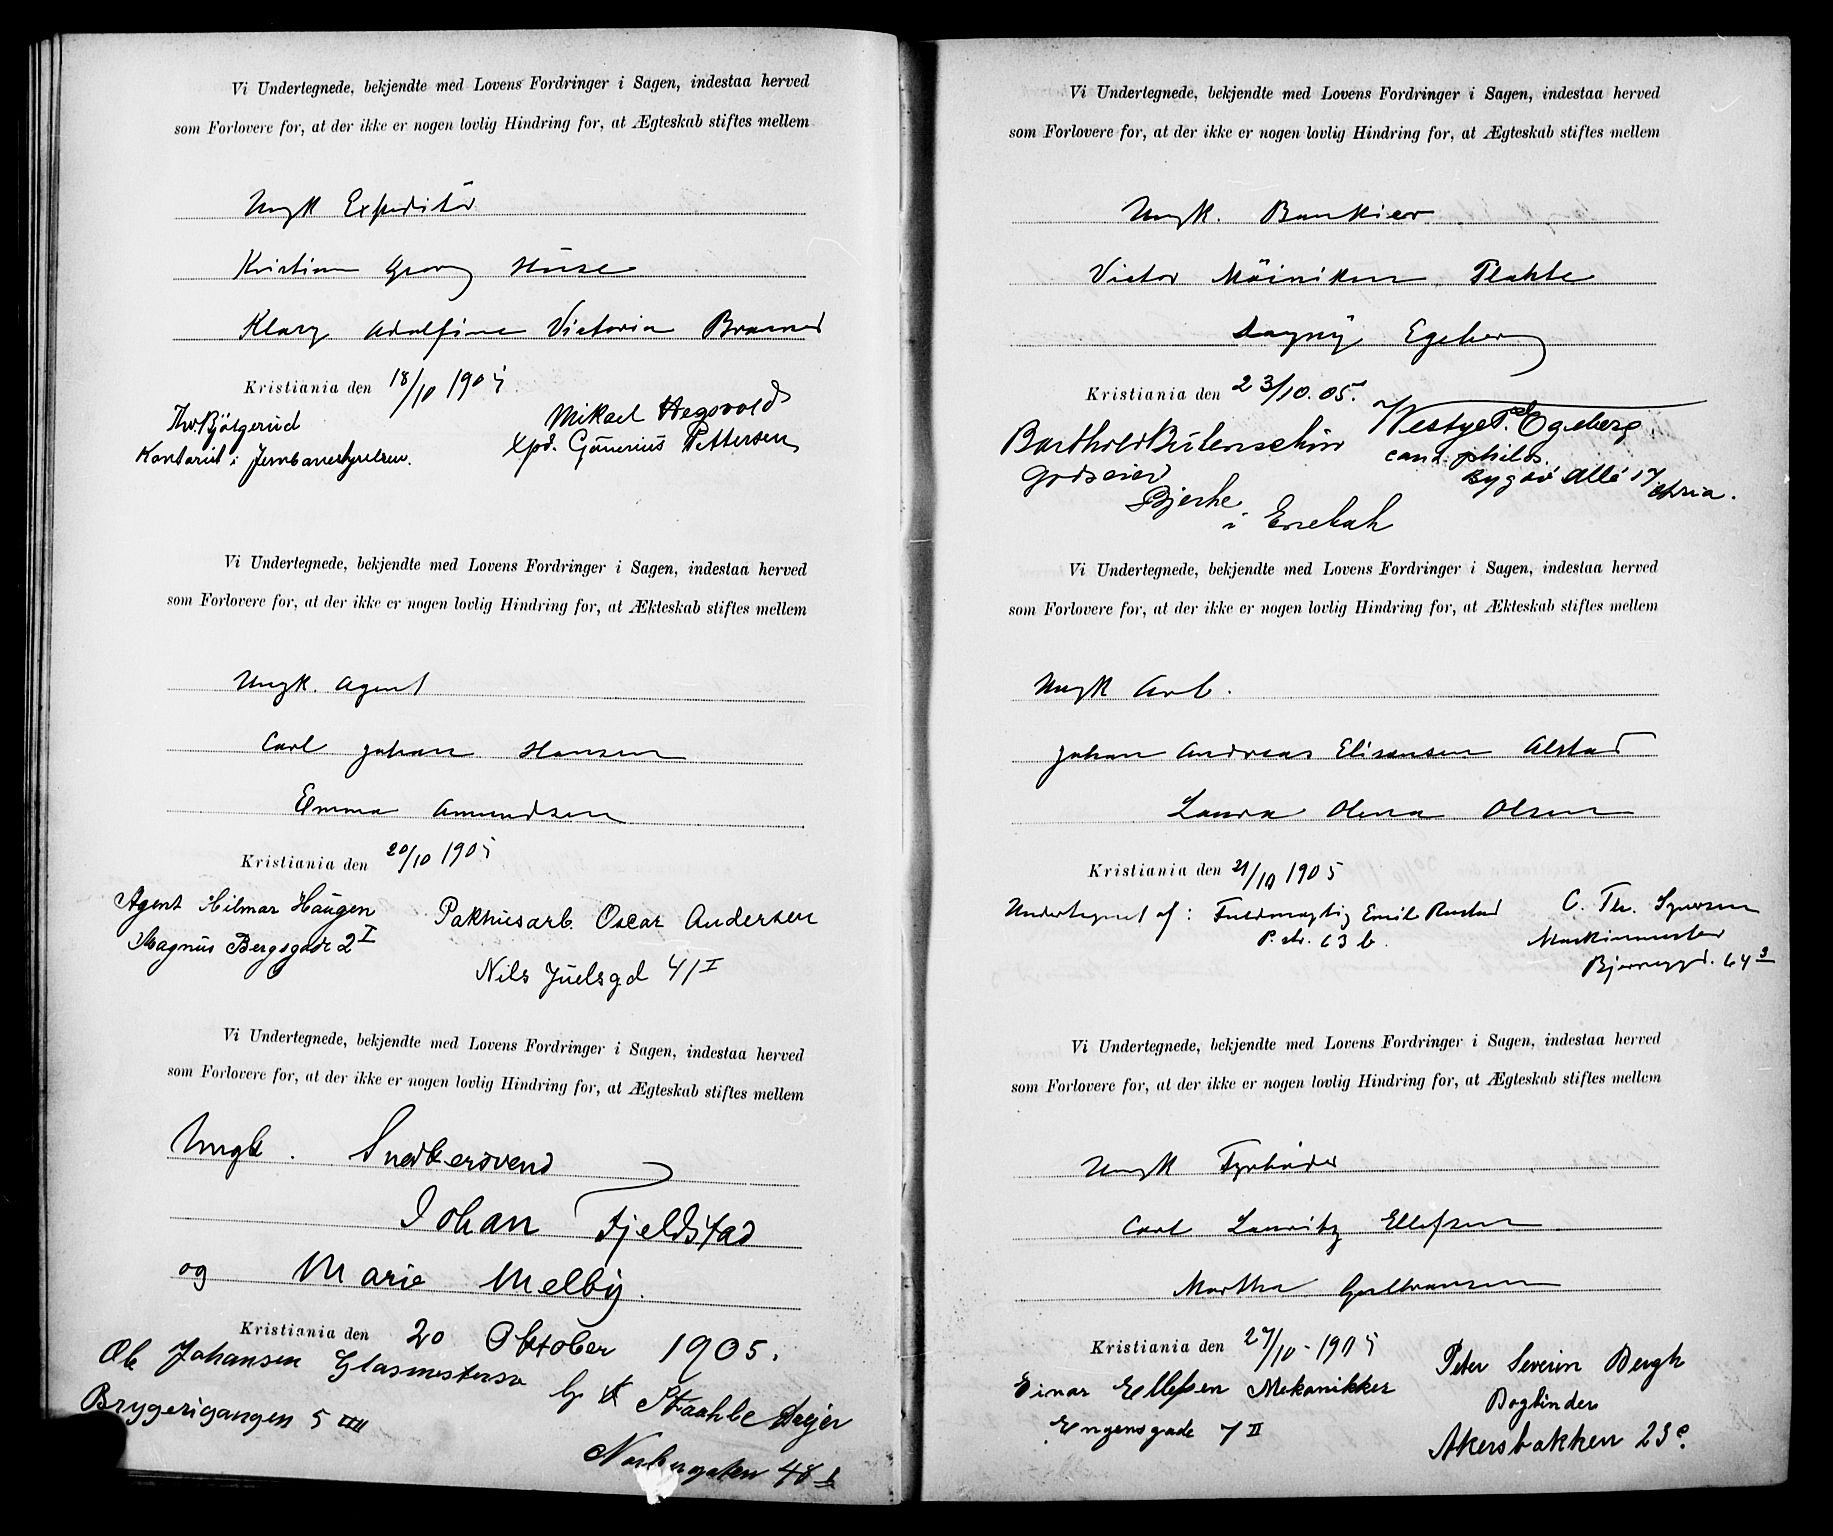 Vi Undertegnede, bekjendte med Lovens Fordringer i Sagen, indestaa herved
som Forlovere for, at der ikke er nogen lovlig Hindring for, at Ægteskab stiftes mellem
Ungk Expeditør
Kristian Georg Huse
Klary Adolfine Victoria
Kristiania den 18/10 1905
Mikael Hegsvold
Kontorist i Jernbanestyrelsen.
Xpd. Gunerius Pettersen
Vi Undertegnede, bekjendte med Lovens Fordringer i Sagen, indestaa herved
som Forlovere for, at der ikke er nogen lovlig Hindring for, at Ækteskab stiftes mellem
Ungk. Agent
Carl Johan Hansen
Emma Amundsen
Kristiania den 20/10 1905
Agent Hilmar Haugen
Magnus Bergsgade 2 I
Pakhusarb. Oscar Andersen
Nils Juelsgd 41 I
Vi Undertegnede, bekjendte med Lovens Fordringer i Sagen, indestaa herved
som Forlovere for, at der ikke er nogen lovlig Hindring for, at Ægteskab stiftes mellem
Ungk. Snedkersvend
Johan Fjeldstad
og Marie Melby.
Kristiania den 20 Oktober 1905.
Ole Johansen Glasmestersv
Bryggerigangen 5
Norbygaten 48 b
Vi Undertegnede, bekjendte med Lovens Fordringer i Sagen, indestaa herved
som Forlovere for, at der ikke er nogen lovlig Hindring for, at Ægteskab stiftes mellem
Ungk. Bankier
Victor Møiniken Plahte
Dagny Egeberg
Kristiania den 23/10. 05.
Westye P. Egeberg
cand. philos.
Bygdø Allé 17
Chria.
Barthold Butenschøn
godseier
Bjerke
i Enebak
Vi Undertegnede, bekjendte med Lovens Fordringer i Sagen, indestaa herved
som Forlovere for, at der ikke er nogen lovlig Hindring for, at Ækteskab stiftes mellem
Ungk Arb.
Johan Andreas Eliseusen Alstad
Laura Olena Olsen
Kristiania den 21/10 1905
Undertegnet af: Fuldmægtig Emil Rustad
P. str. 63 b.
C. Th. Syversen
Maskinmester
Vi Undertegnede, bekjendte med Lovens Fordringer i Sagen, indestaa herved
som Forlovere for, at der ikke er nogen lovlig Hindring for, at Ægteskab stiftes mellem
Ungk Fyrbøder
Carl Lauritz Ellefsen
Martha Gulbransen
Kristiania den 27/10 - 1905
Einar Ellefsen Mekanikker
Engensgade 7 II
Peter Severin Bergh
Bogbinder
Akersbakken 23 c.